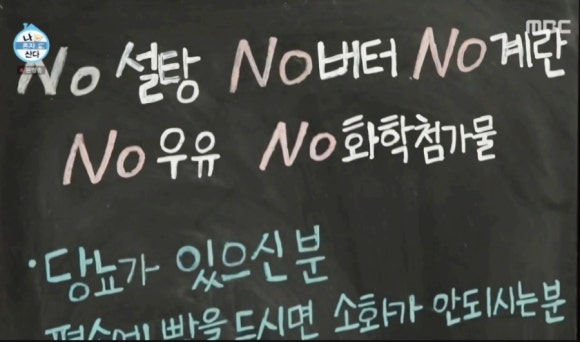 나 혼자 산다
MBC
No 설탕 No 버터 No 계란
No 우유 No 화학첨가물
· 당뇨가 있으신 분
평소에 빵을 드시면 소화가 안되시는분